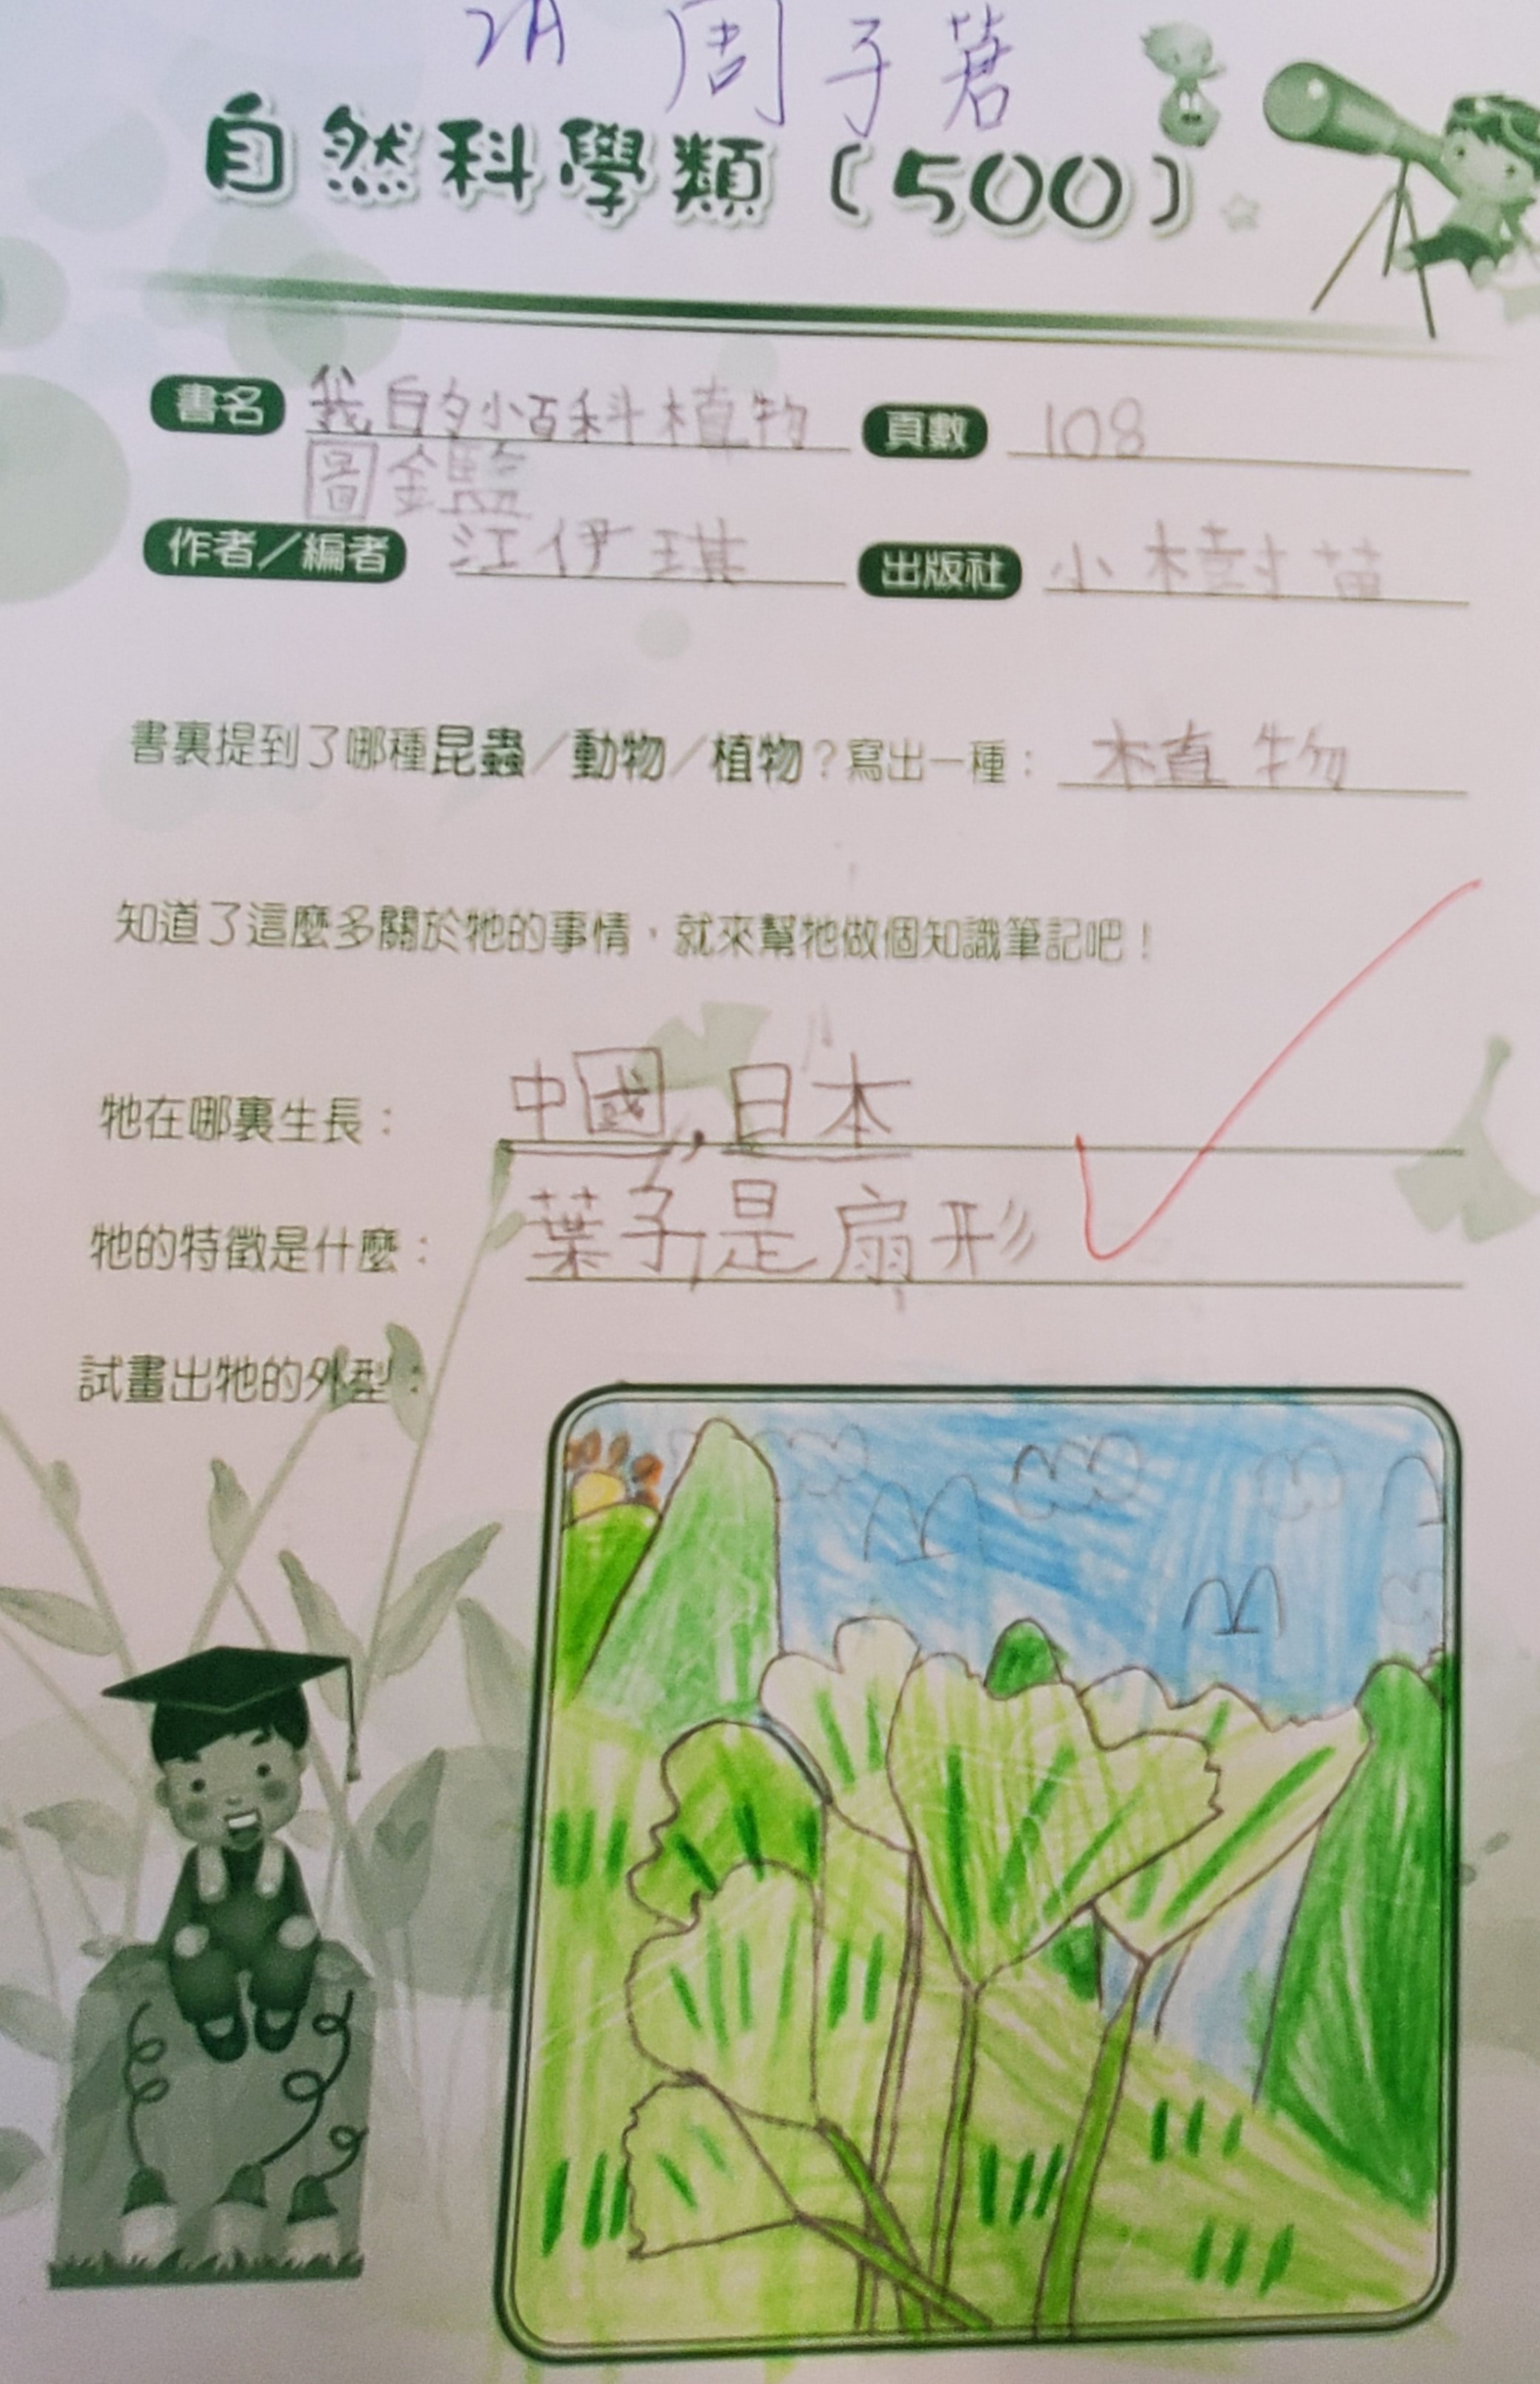 2A 周子莙
自然科學類〔500〕
書名 我的小百科植物 頁數 108
圖鑑
作者／編者 江伊琪 出版社 小樹苗
書裏提到了哪種昆蟲／動物／植物？寫出一種： 植物
知道了這麼多關於牠的事情，就來幫牠做個知識筆記吧！
牠在哪裏生長： 中國，日本
牠的特徵是什麼： 葉子是扇形
試畫出牠的外型：